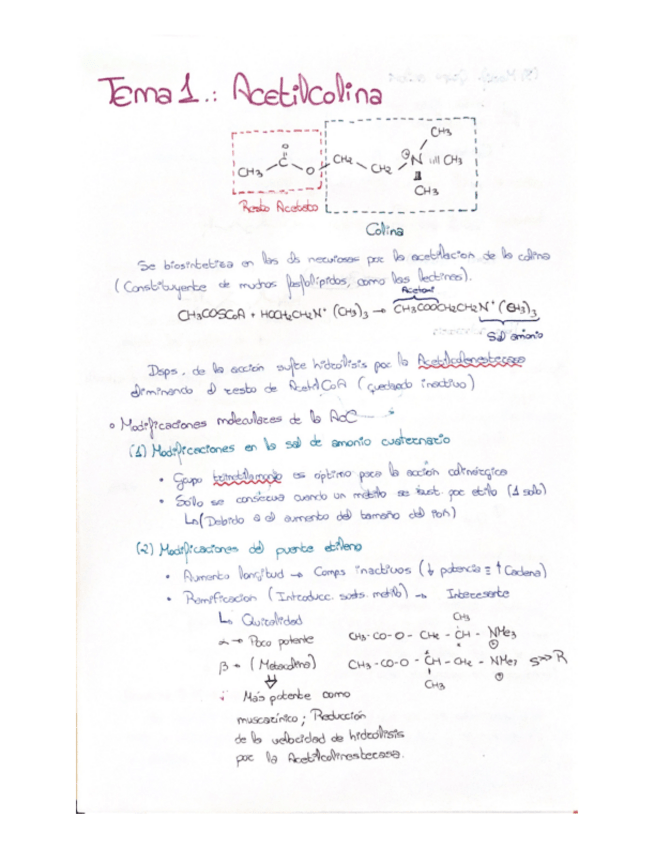 Tema 1.: Acetilcolina
CH3 - C - O - CH2 - CH2 - N - CH3
O
CH3
CH3
Resto Acetato
Colina
Se biosintetiza en las cls nerviosas por la acetilacion de la colina
(Constituyente de muchos fosfolípidos, como las lecitinas).
Acetato
CH3COSCoA + HOCH2CH2N+ (CH3)3 → CH3COOCH2CH2N+ (CH3)3
Sal amonio
Dsps. de la acción sufre hidrólisis por la Acetilcolinesterasa
eliminando el resto de AcetilCoA (quedando inactivo)
• Modificaciones moleculares de la AcC
(1) Modificaciones en la sal de amonio cuaternario
• Grupo trimetilamonio es óptimo para la acción colinérgica
• Sólo se conserva cuando un metilo se sust. por etilo (1 solo)
↳ (Debido a el aumento del tamaño del ion)
(2) Modificaciones del puente etileno
• Aumento longitud → Comps inactivos (↓ potencia ≡ ↑ Cadena)
• Ramificación (Introducc. susts. metilo) → Interesante
↳ Quiralidad
CH3
α → Poco potente CH3-CO-O - CH2 - CH - NMe3
⊕
β → (Metacolina) CH3-CO-O - CH - CH2 - NMe3 S>>R
CH3 ⊕
⇓
Más potente como
muscarínico; Reducción
de la velocidad de hidrólisis
por la Acetilcolinesterasa.